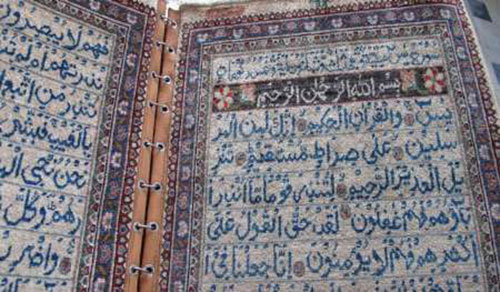 بسم الله الرحمن الرحيم
يس والقرآن الحكيم إنك لمن المر
سلين على صراط مستقيم تنز
يل العزيز الرحيم لتنذر قوما ما أنذر
آباؤهم فهم غافلون لقد حق القول على
أكثرهم فهم لا يؤمنون إنا جعلنا في
فهم لا يبصرون
تنذرهم
تنذر من اتبع
بالغيب فبشر
نحن نحي
هم وكل
واضر